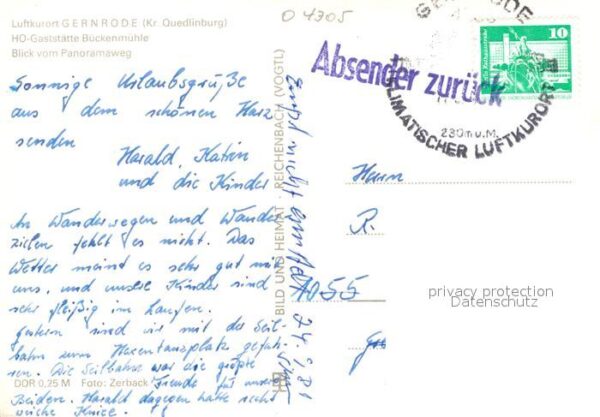 Luftkurort GERNRODE (Kr. Quedlinburg)
HO-Gaststätte Bückenmühle
Blick vom Panoramaweg
0 4705
Sonnige Urlaubsgrüße
aus dem schönen Harz
senden
Harald, Katrin
und die Kinder
An Wanderwegen und Wander
zielen fehlt es nicht. Das
Wetter meint es sehr gut mit
uns, und unsere Kinder sind
sehr fleißig im Laufen.
Gestern sind wir mit der Seil-
bahn zum Hexentanzplatz gefah-
ren. Die Seilbahn war die größte
Freude für unsere
Beiden. Harald dagegen hatte recht
weiche Knie.
DDR 0,25 M Foto: Zerback
BILD UND HEIMAT · REICHENBACH (VOGTL)
Empf nicht
24.9.81
Absender zurück
10
KLIMATISCHER LUFTKURORT
230m ü.M.
Herrn
R.
1055
privacy protection
Datenschutz